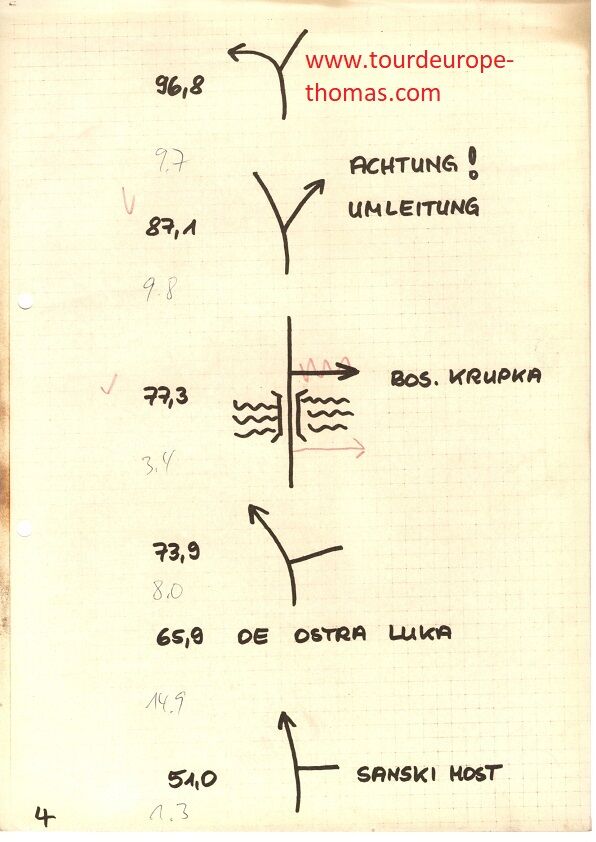 www.tourdeurope-
thomas.com
96,8
9.7
ACHTUNG!
UMLEITUNG
87,1
9.8
BOS. KRUPKA
77,3
3.4
73,9
8.0
65,9 OE OSTRA LUKA
14.9
51,0 SANSKI MOST
1.3
4